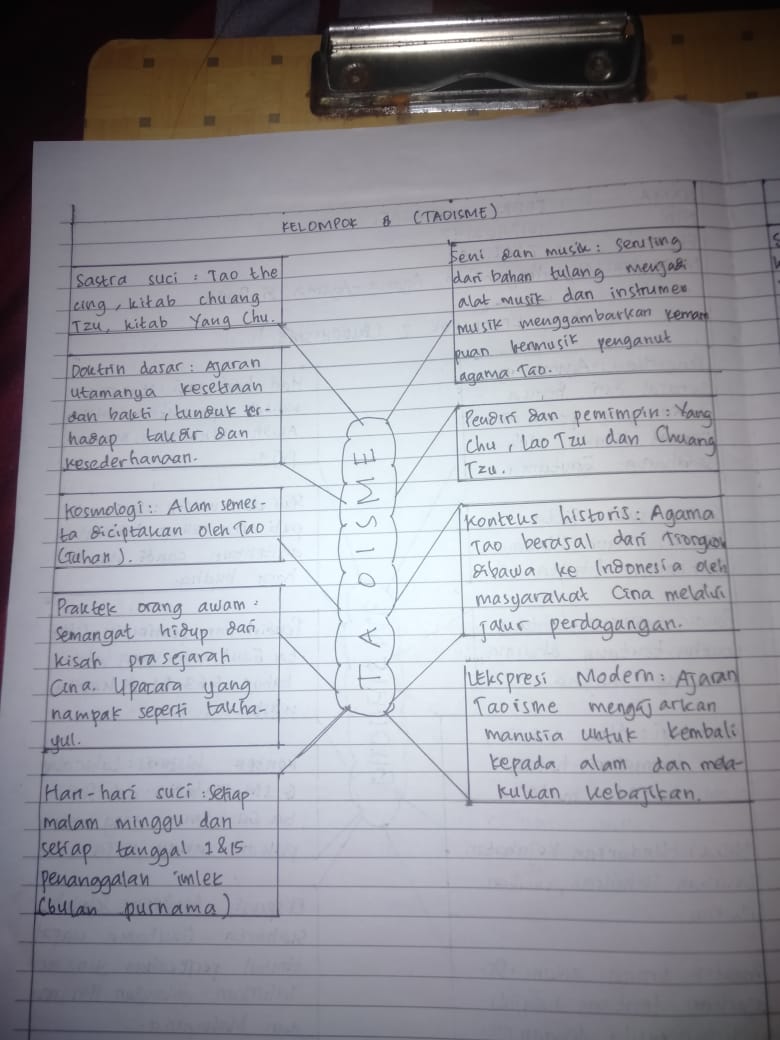 KELOMPOK 8 (TAOISME)
Sastra suci : Tao the
cing, kitab chuang
Tzu, kitab Yang Chu.
Doktrin dasar : Ajaran
utamanya kesetiaan
dan bakti, tunduk ter-
hadap takdir dan
kesederhanaan.
Kosmologi : Alam semes-
ta diciptakan oleh Tao
(Tuhan).
Praktek orang awam :
Semangat hidup dari
kisah prasejarah
Cina. Upacara yang
nampak seperti takha-
yul.
Hari-hari suci : Setiap
malam minggu dan
setiap tanggal 1 & 15
penanggalan imlek
(bulan purnama)
TAOISME
Seni dan musik : Seruling
dari bahan tulang menjadi
alat musik dan instrumen
musik menggambarkan kemam
puan bermusik penganut
agama Tao.
Pendiri dan pemimpin : Yang
Chu, Lao Tzu dan Chuang
Tzu.
Konteks historis : Agama
Tao berasal dari Tiongkok
dibawa ke Indonesia oleh
masyarakat Cina melalui
jalur perdagangan.
Ekspresi Modern : Ajaran
Taoisme mengajarkan
manusia untuk kembali
kepada alam dan mela-
kukan kebajikan.